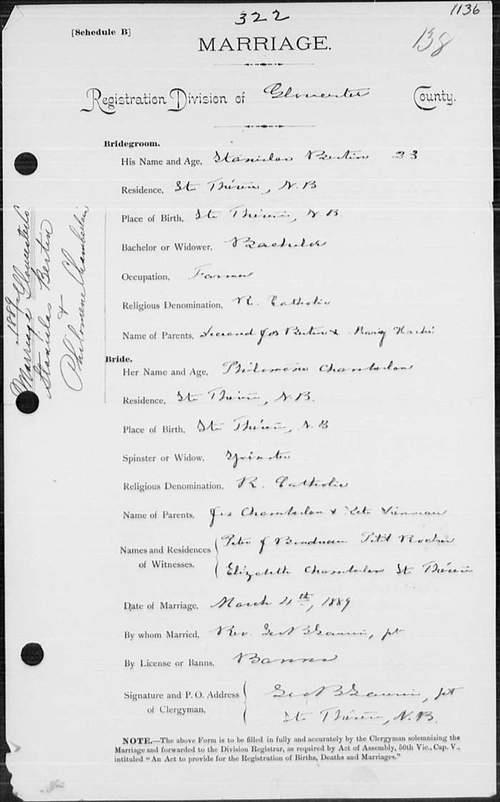 322
1136
[Schedule B]
138
MARRIAGE.
Registration Division of Gloucester County.
Bridegroom.
His Name and Age, Stanislas Bertin 33
Residence, Ste Thérèse, N.B
Place of Birth, Ste Thérèse, N B
Bachelor or Widower, Bachelor
Occupation, Farmer
Religious Denomination, R. Catholic
Name of Parents, Jos Bertin & Mary
1889
Marriage Gloucester Co
Stanislas Bertin
&
Philomene Chamberlain
Bride.
Her Name and Age, Philomene Chamberlan
Residence, Ste Thérèse, N.B.
Place of Birth, Ste Thérèse, N.B
Spinster or Widow, Spinster
Religious Denomination, R. Catholic
Name of Parents, Jos Chamberlan &
Names and Residences of Witnesses. Peter J Boudreau Petit Rocher
Elizabeth Chamberlan Ste Thérèse
Date of Marriage, March 4th, 1889
By whom Married, Rev. Geo B , pt
By License or Banns, Banns
Signature and P. O. Address of Clergyman, Geo B , pt
Ste Thérèse, N.B.
NOTE.—The above Form is to be filled in fully and accurately by the Clergyman solemnizing the
Marriage and forwarded to the Division Registrar, as required by Act of Assembly, 50th Vic., Cap. V.,
intituled "An Act to provide for the Registration of Births, Deaths and Marriages."